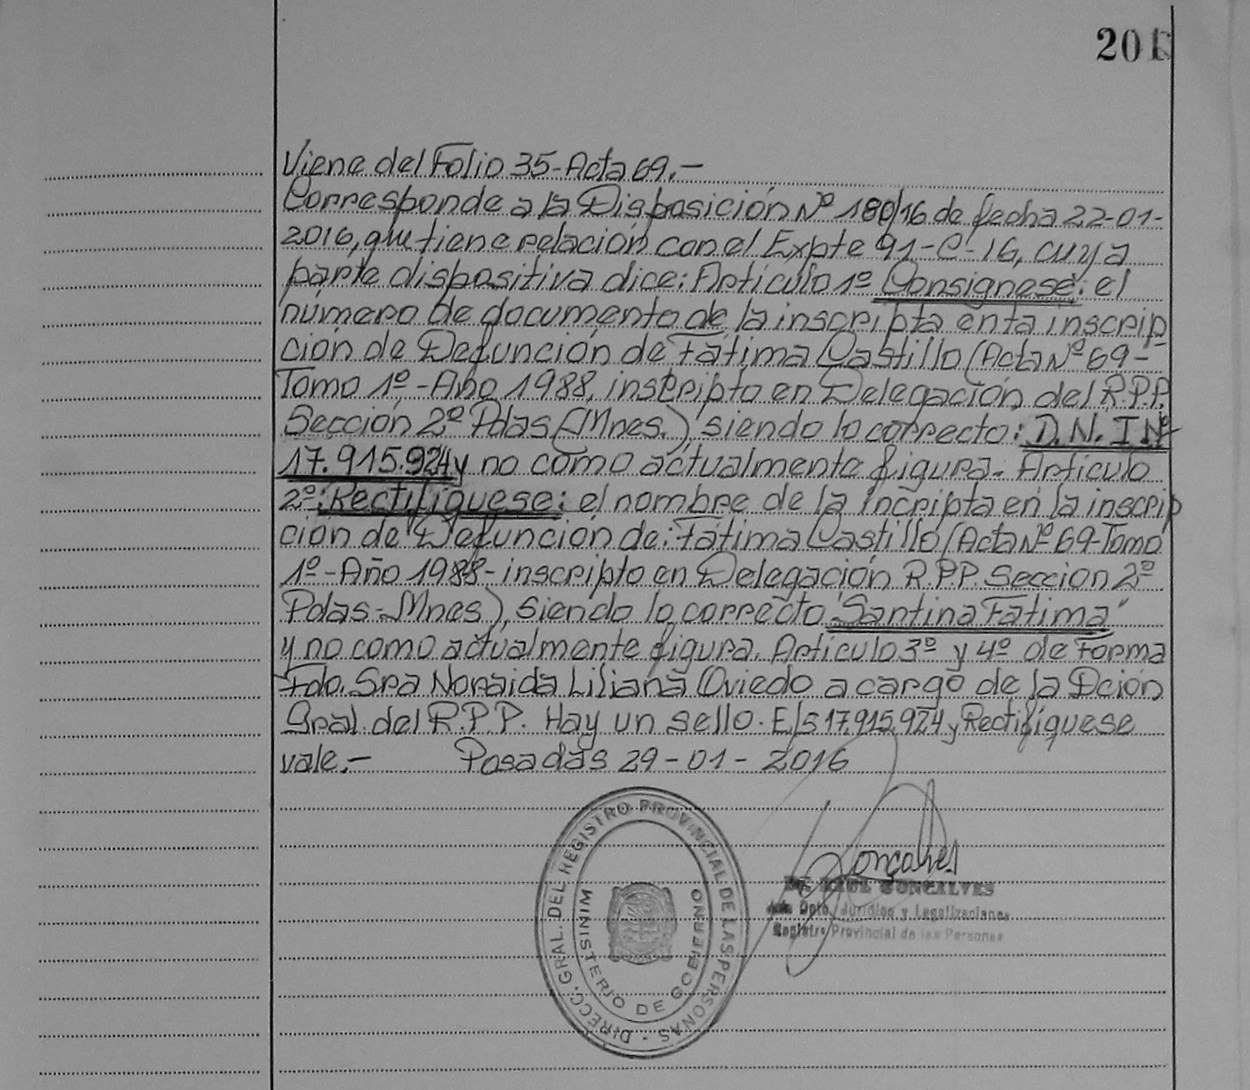 201
Viene del Folio 35-Acta 69.-
Corresponde a la Disposición Nº 180/16 de fecha 22-01-
2016, que tiene relación con el Expte 91-C-16, cuya
parte dispositiva dice: Artículo 1º Consignese: el
número de documento de la inscripta en la inscrip
ción de Defunción de Fátima Castillo (Acta Nº 69-
Tomo 1º-Año 1988, inscripto en Delegación del R.P.P.
Sección 2º Pdas (Mnes.), siendo lo correcto: D.N.I Nº
17.915.924 y no como actualmente figura. Artículo
2º: Rectifíquese: el nombre de la incripta en la inscrip
ción de Defunción de: Fátima Castillo (Acta Nº 69-Tomo
1º-Año 1988-inscripto en Delegación R.P.P. Sección 2º
Pdas-Mnes), siendo lo correcto "Santina Fatima"
y no como actualmente figura. Artículo 3º y 4º de Forma
Fdo. Sra Noraida Liliana Oviedo a cargo de la Dción
Gral. del R.P.P. Hay un sello. E/s 17.915.924 y Rectifíquese
vale.- Posadas 29-01-2016
DIRECC. GRAL. DEL REGISTRO PROVINCIAL DE LAS PERSONAS
MINISTERIO DE GOBIERNO
Gonçalves
Dr. RAUL GONCALVES
Dpto. Jurídico y Legalizaciones
Registro Provincial de las Personas